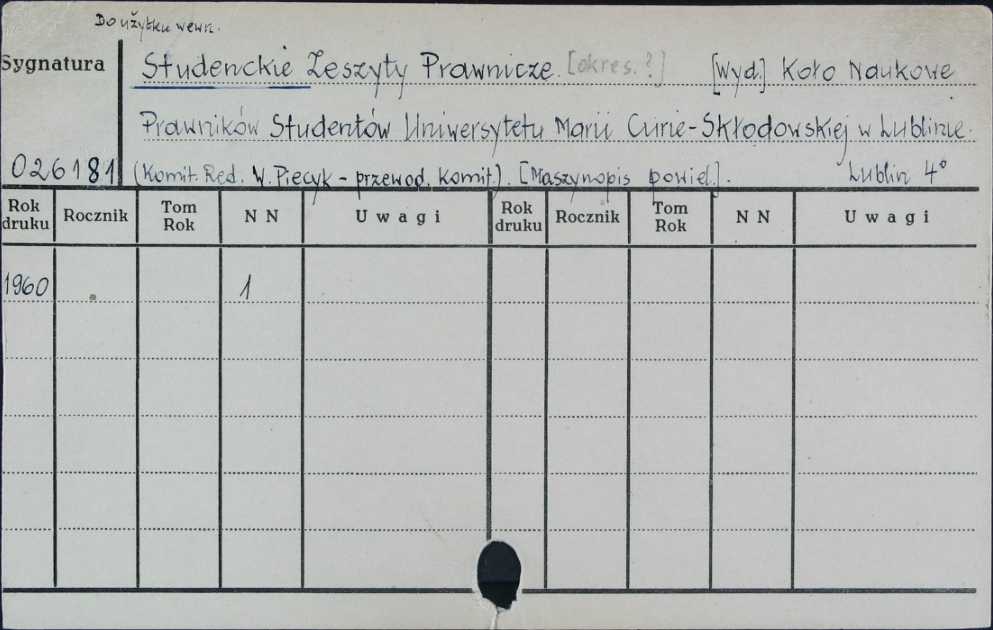 Do użytku wewn.
Sygnatura
Studenckie Zeszyty Prawnicze [okres.?] [Wyd.] Koło Naukowe
Prawników Studentów Uniwersytetu Marii Curie-Skłodowskiej w Lublinie.
026181 (Komit. Red. W. Piecyk - przewod. Komit.). [Maszynopis powiel.]. Lublin 4°
Rok druku Rocznik Tom Rok NN Uwagi Rok druku Rocznik Tom Rok NN Uwagi
1960 1